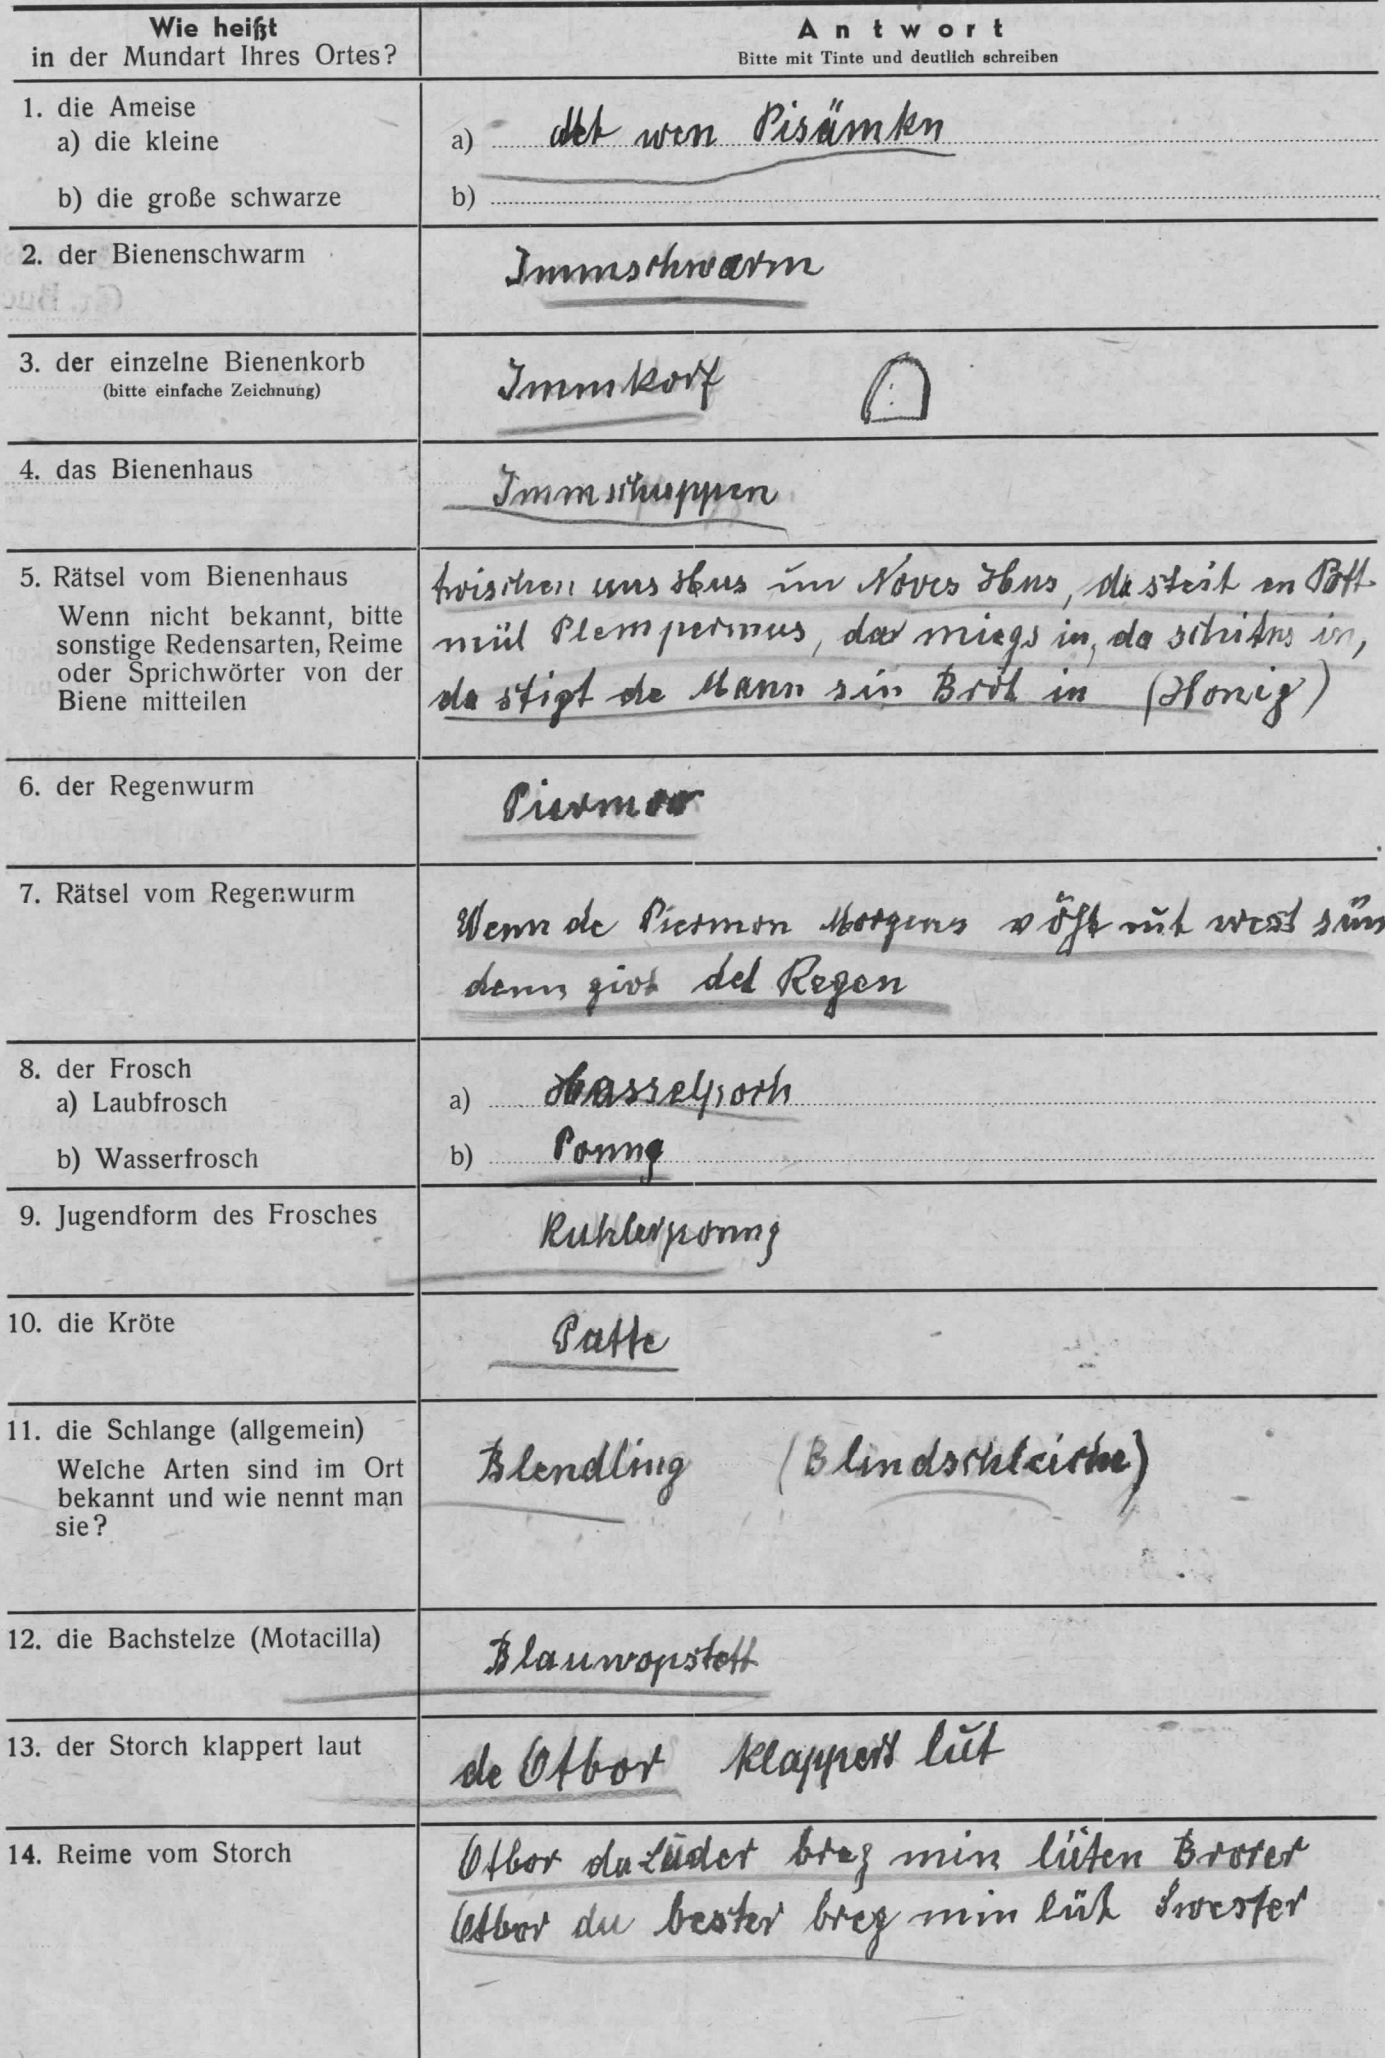 Wie heißt
in der Mundart Ihres Ortes?
Antwort
Bitte mit Tinte und deutlich schreiben
1. die Ameise
a) die kleine
a) det wen Pisämkn
b) die große schwarze
b)
2. der Bienenschwarm
Immschwarm
3. der einzelne Bienenkorb
(bitte einfache Zeichnung)
Immkorf
4. das Bienenhaus
Immschuppen
5. Rätsel vom Bienenhaus
Wenn nicht bekannt, bitte
sonstige Redensarten, Reime
oder Sprichwörter von der
Biene mitteilen
twischen uns Hus un Noves Hus, da steit en Pott
mül Plempermus, da miegs in, da schitns in,
da stigt de Mann sin Bröt in (Honig)
6. der Regenwurm
Piermoo
7. Rätsel vom Regenwurm
Wenn de Piermon Morgens rut west sün
denn givt det Regen
8. der Frosch
a) Laubfrosch
a) Hasselpoch
b) Wasserfrosch
b) Ponng
9. Jugendform des Frosches
Kuhlerponng
10. die Kröte
Patte
11. die Schlange (allgemein)
Welche Arten sind im Ort
bekannt und wie nennt man
sie?
Blendling (Blindschleiche)
12. die Bachstelze (Motacilla)
Blauwopstett
13. der Storch klappert laut
de Otbor klappert lut
14. Reime vom Storch
Otbor du Luder breg min lüten Brorer
Otbor du bester breg min lüt Swester